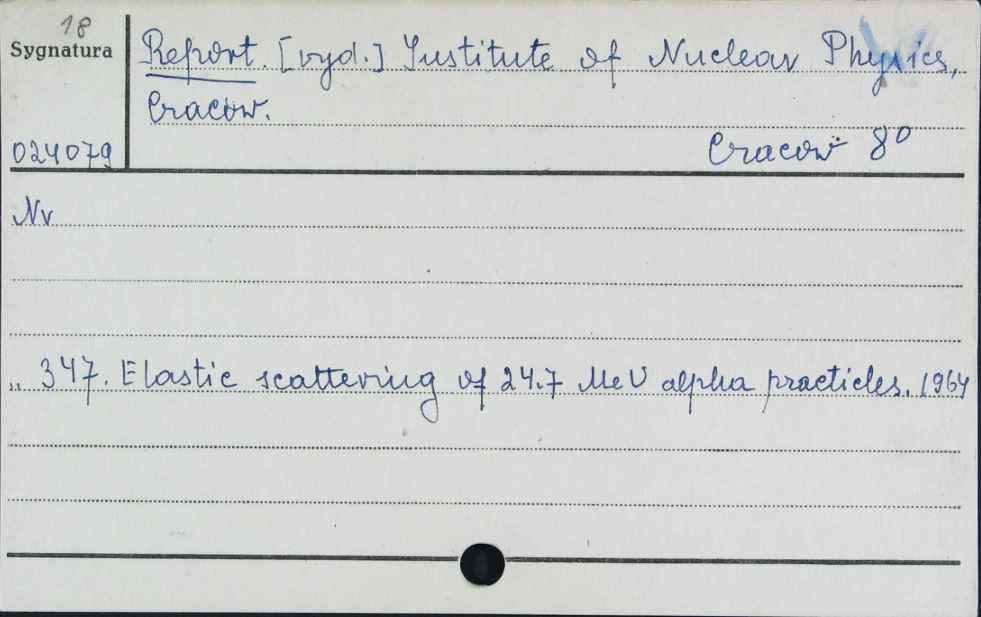 18
Sygnatura
Report. [wyd.] Institute of Nuclear Physics,
Cracow.
024079
Cracow 8°
Nr
„ 347. Elastic scattering of 24.7 MeV alpha practicles. 1964